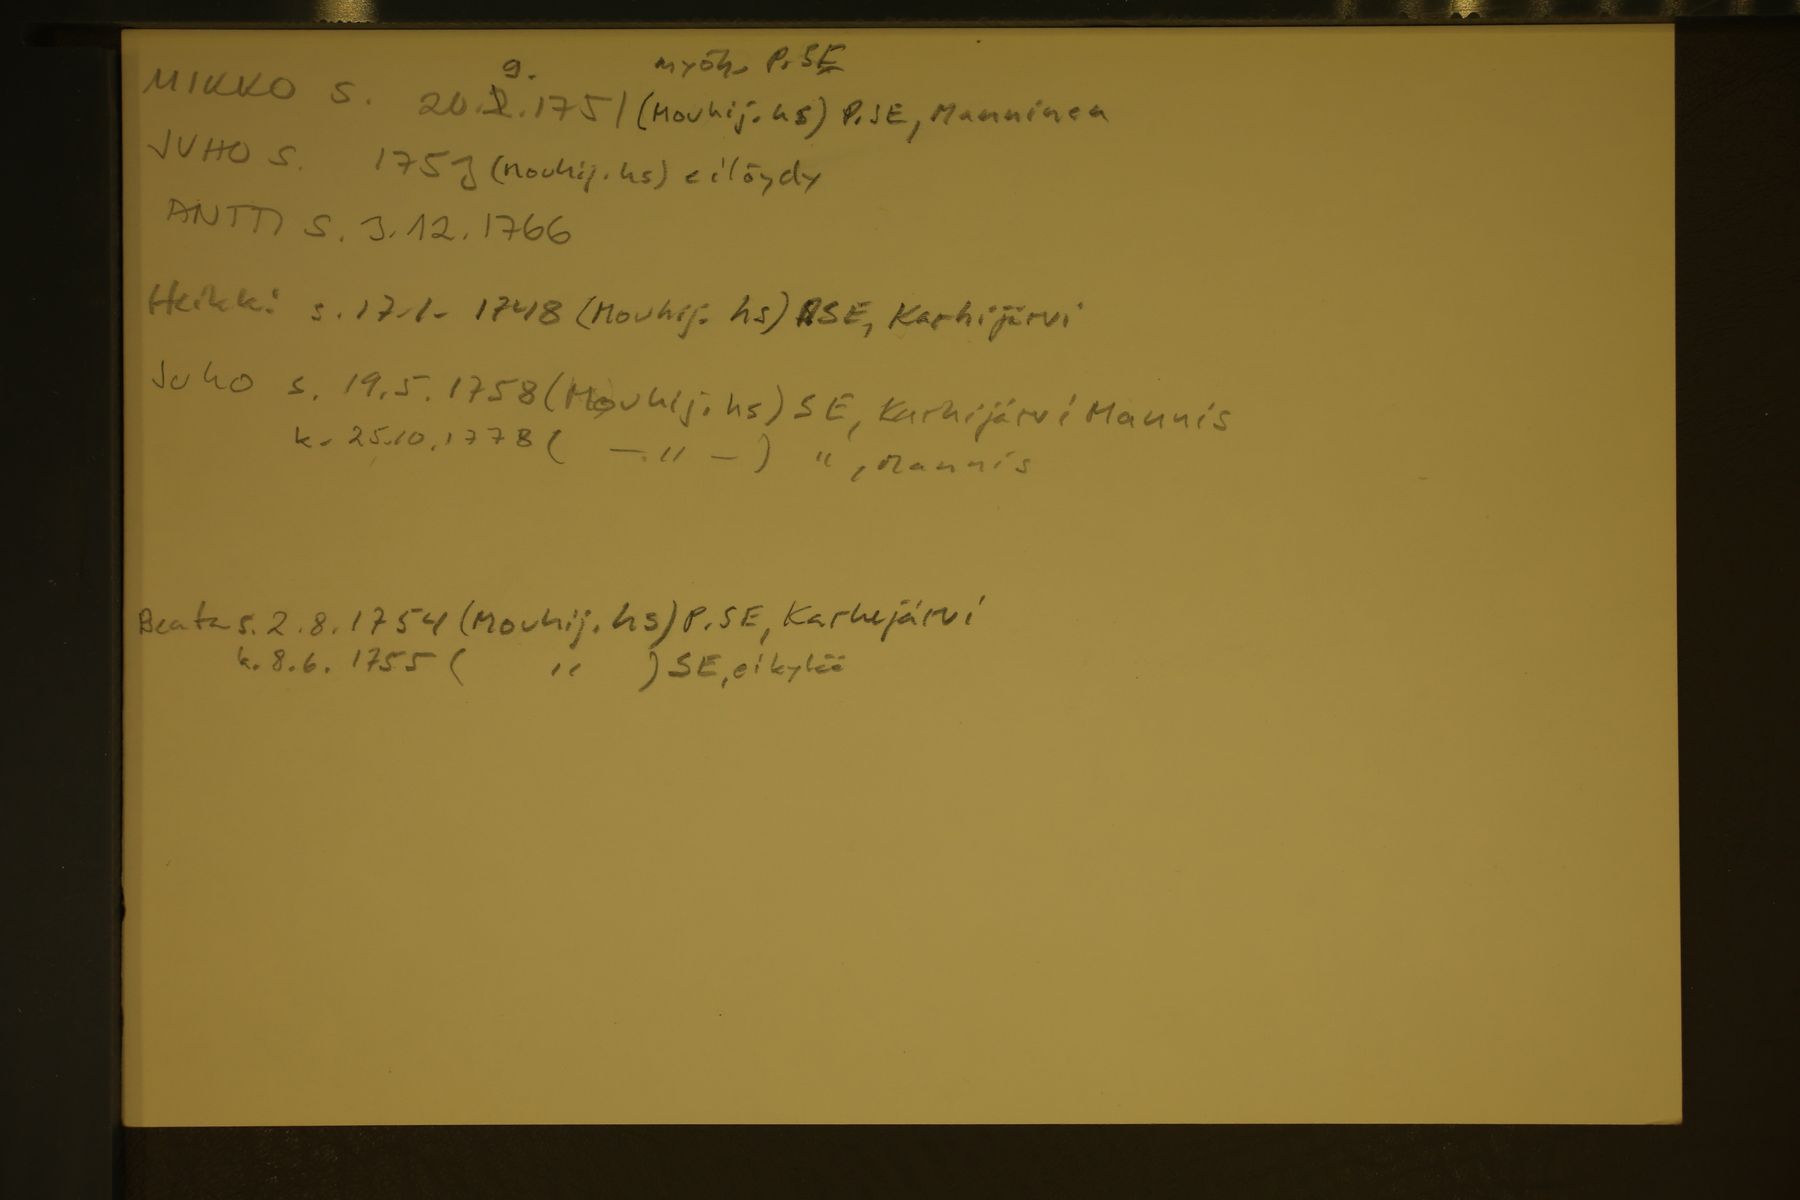 9. myöh. P.SE
MIKKO S. 20.X.1751 (Mouhij. hs) P.SE, Manninen
JUHO S. 1753 (Mouhij. hs) ei löydy
ANTTI S. 3.12.1766
Heikki s. 17.1. 1748 (Mouhij. hs) P.SE, Karhijärvi
Juho s. 19.5.1758 (Mouhij. hs) SE, Karhijärvi Mannis
k. 25.10.1778 ( — " — ) " , Mannis
Beata s. 2.8.1754 (Mouhij. hs) P.SE, Karhejärvi
k. 8.6. 1755 ( " ) SE, ei kylää